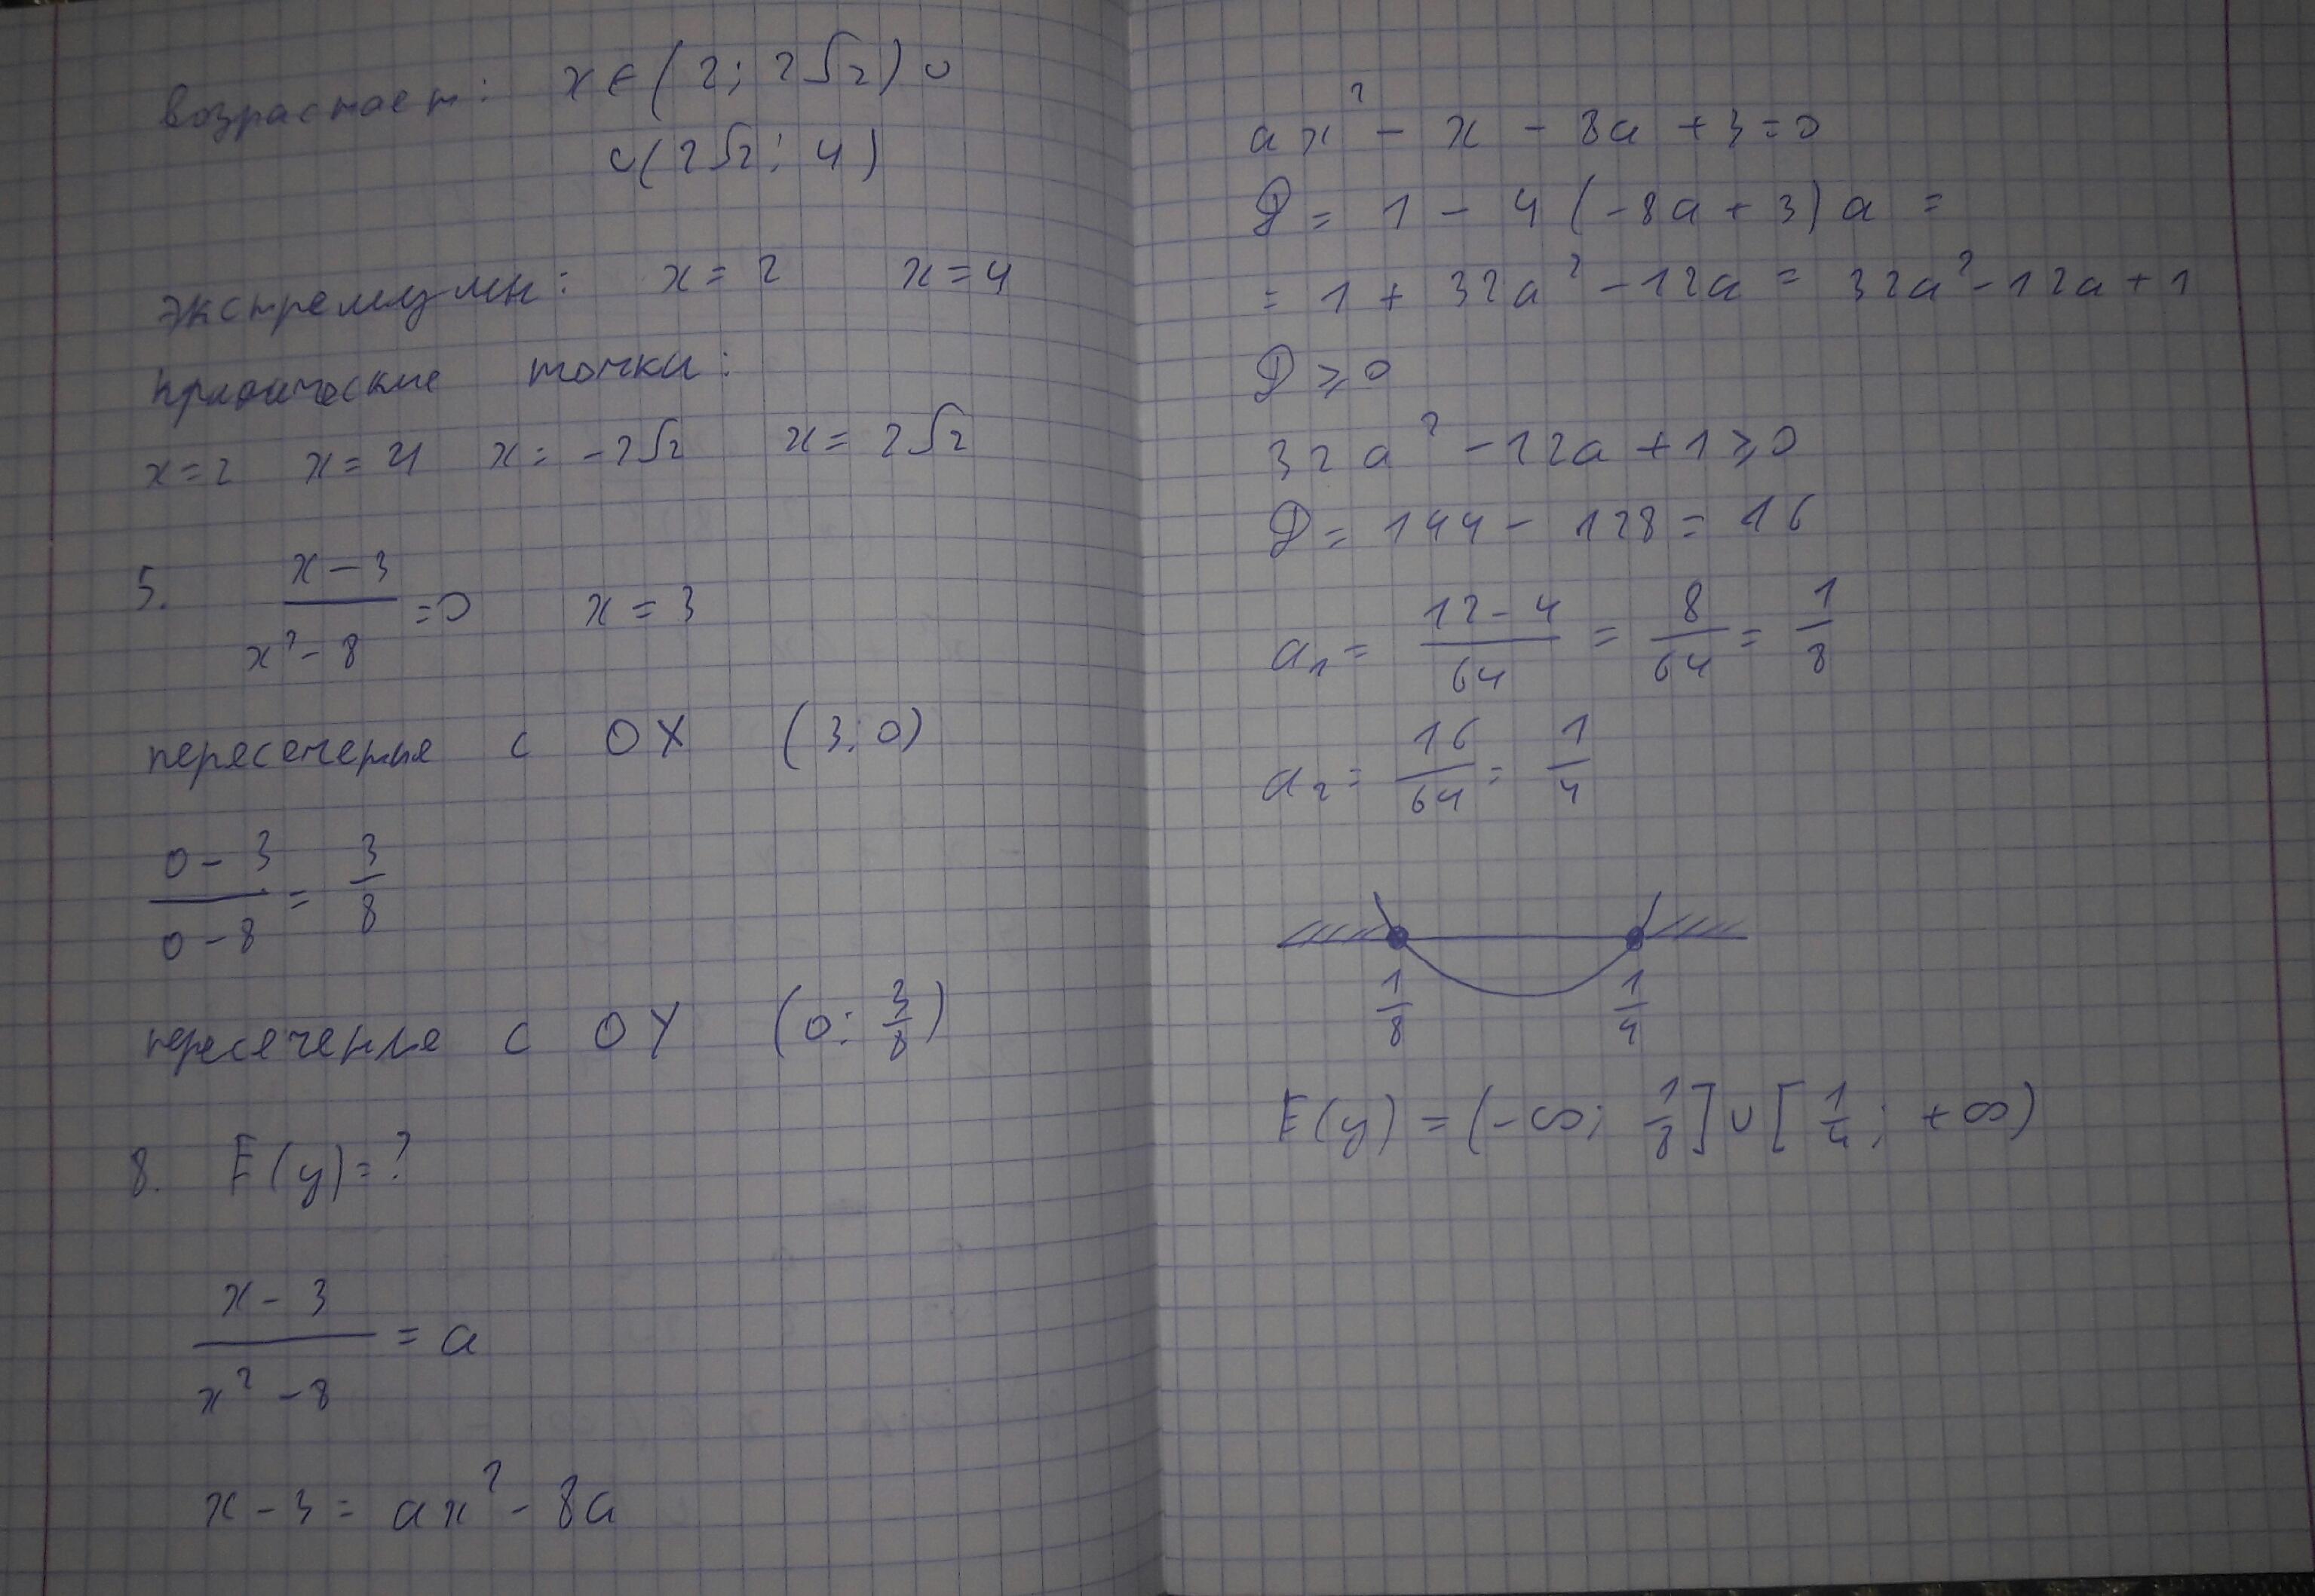 возрастает: x ∈ (2; 2√2) ∪
∪ (2√2; 4)
экстремумы: x = 2 x = 4
критические точки:
x = 2 x = 4 x = -2√2 x = 2√2
5. (x - 3)/(x² - 8) = 0 x = 3
пересечения с OX (3; 0)
(0 - 3)/(0 - 8) = 3/8
пересечения с OY (0; 3/8)
8. E(y) = ?
(x - 3)/(x² - 8) = a
x - 3 = ax² - 8a
ax² - x - 8a + 3 = 0
D = 1 - 4(-8a + 3)a =
= 1 + 32a² - 12a = 32a² - 12a + 1
D ⩾ 0
32a² - 12a + 1 ⩾ 0
D = 144 - 128 = 16
a₁ = (12 - 4)/64 = 8/64 = 1/8
a₂ = 16/64 = 1/4
1/8 1/4
E(y) = (-∞; 1/8] ∪ [1/4; +∞)